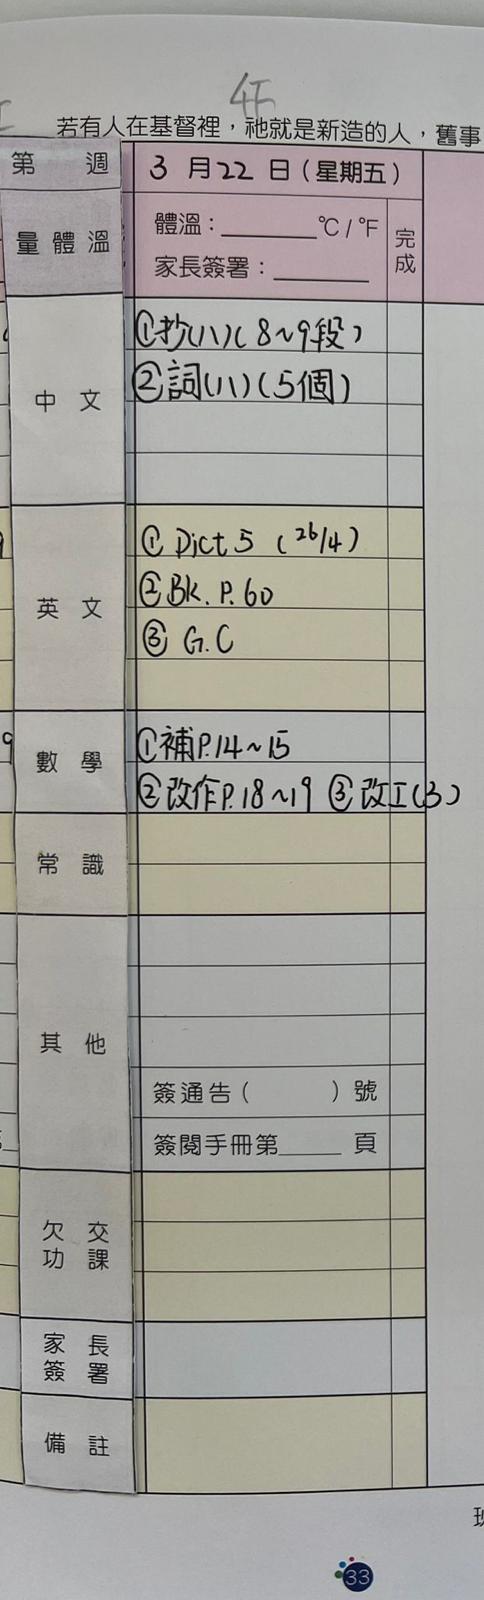 4F
若有人在基督裡，祂就是新造的人，舊事
第 週
3 月 22 日（星期五）
量體溫
體溫：______℃/℉
家長簽署：______
完成
中文
①抄(八)(8~9段)
②詞(八)(5個)
英文
① Dict 5 (26/4)
② BK. P. 60
③ G.C
數學
①補P.14~15
②改作P.18~19 ③改工(3)
常識
其他
簽通告（ ）號
簽閱手冊第______頁
欠交功課
家長簽署
備註
33